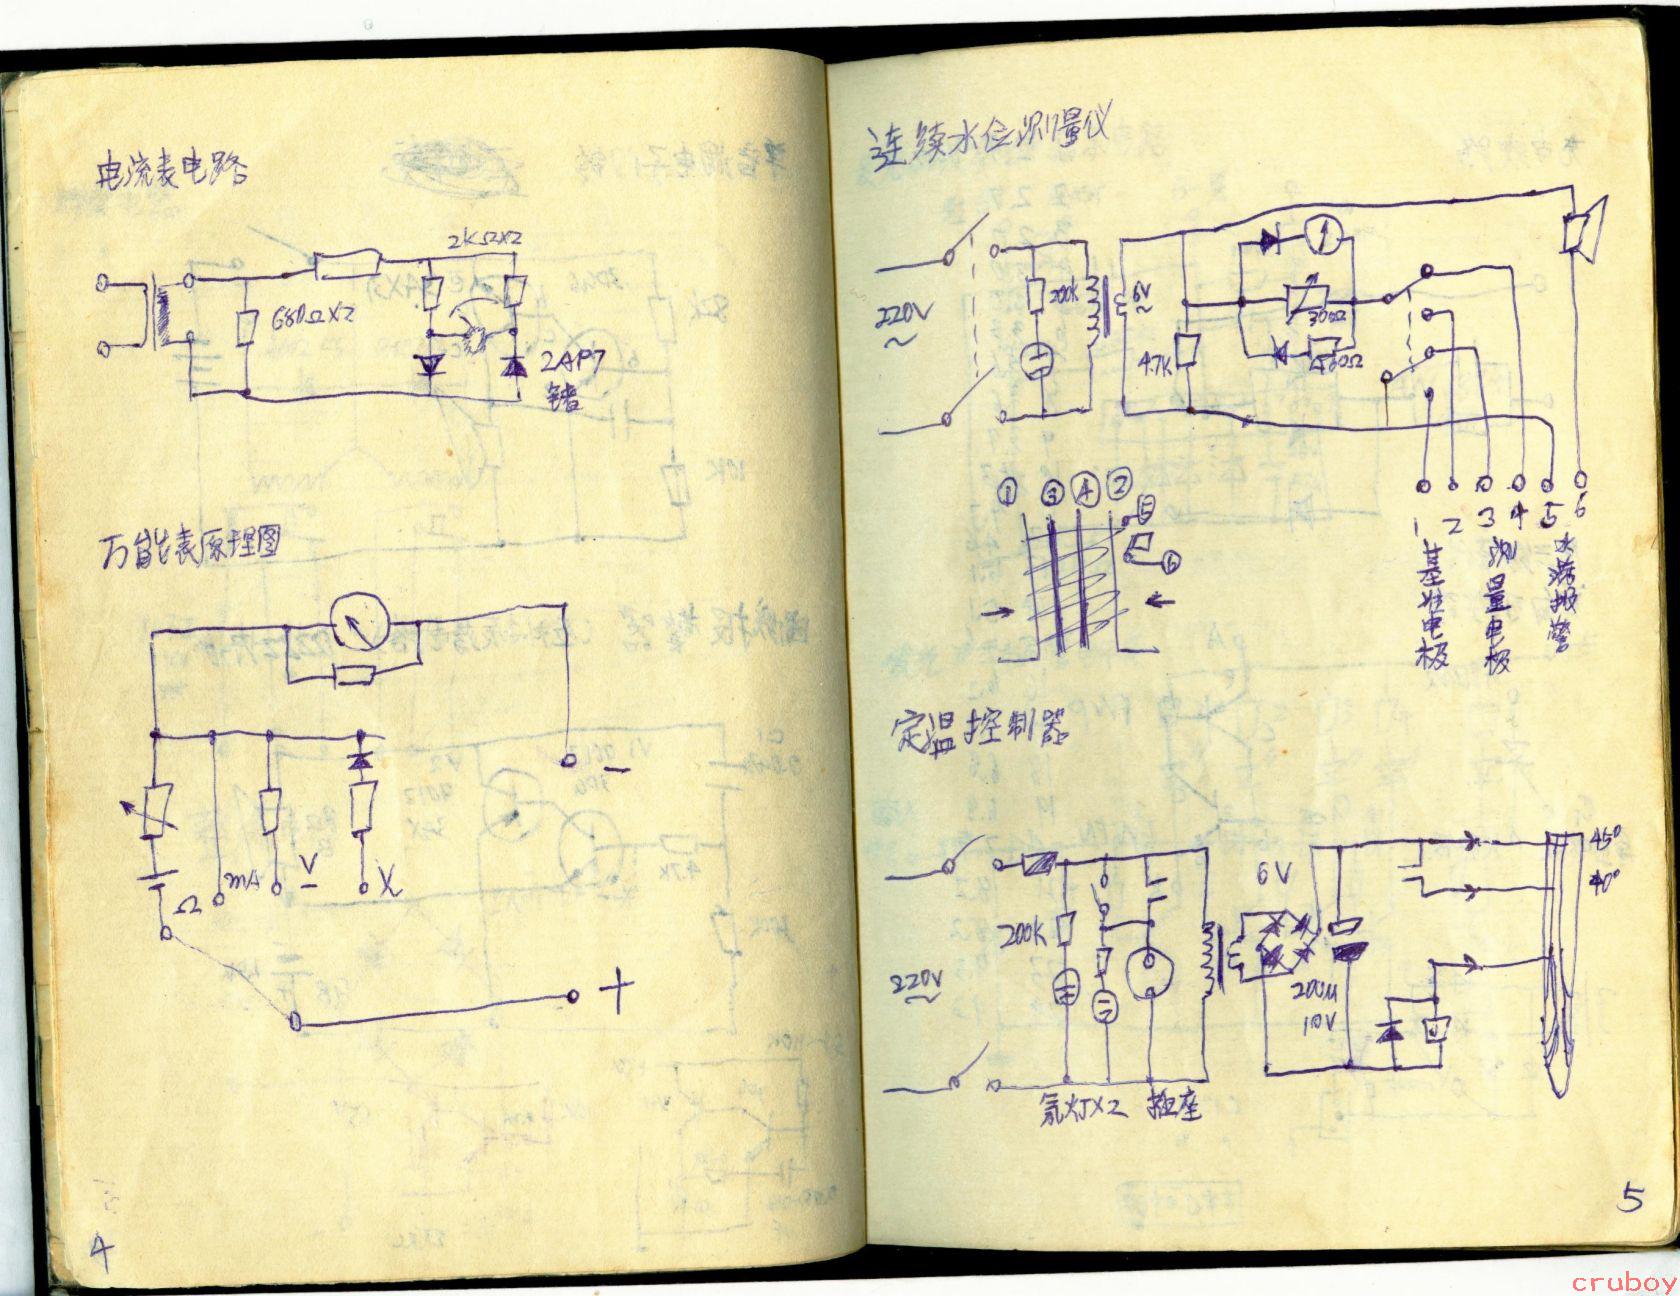 电流表电路
2KΩX2
680ΩX2
2AP7
锗
万能表原理图
−
Ω
mA
V
X
+
4
连续水位测量仪
220V
~
200K
6V
~
4.7K
300Ω
460Ω
① ③ ④ ②
⑤
⑥
1 2 3 4 5 6
基准电极
测量电极
水满报警
定温控制器
45°
40°
6V
200K
220V
~
200μ
10V
氖灯X2 插座
5
cruboy